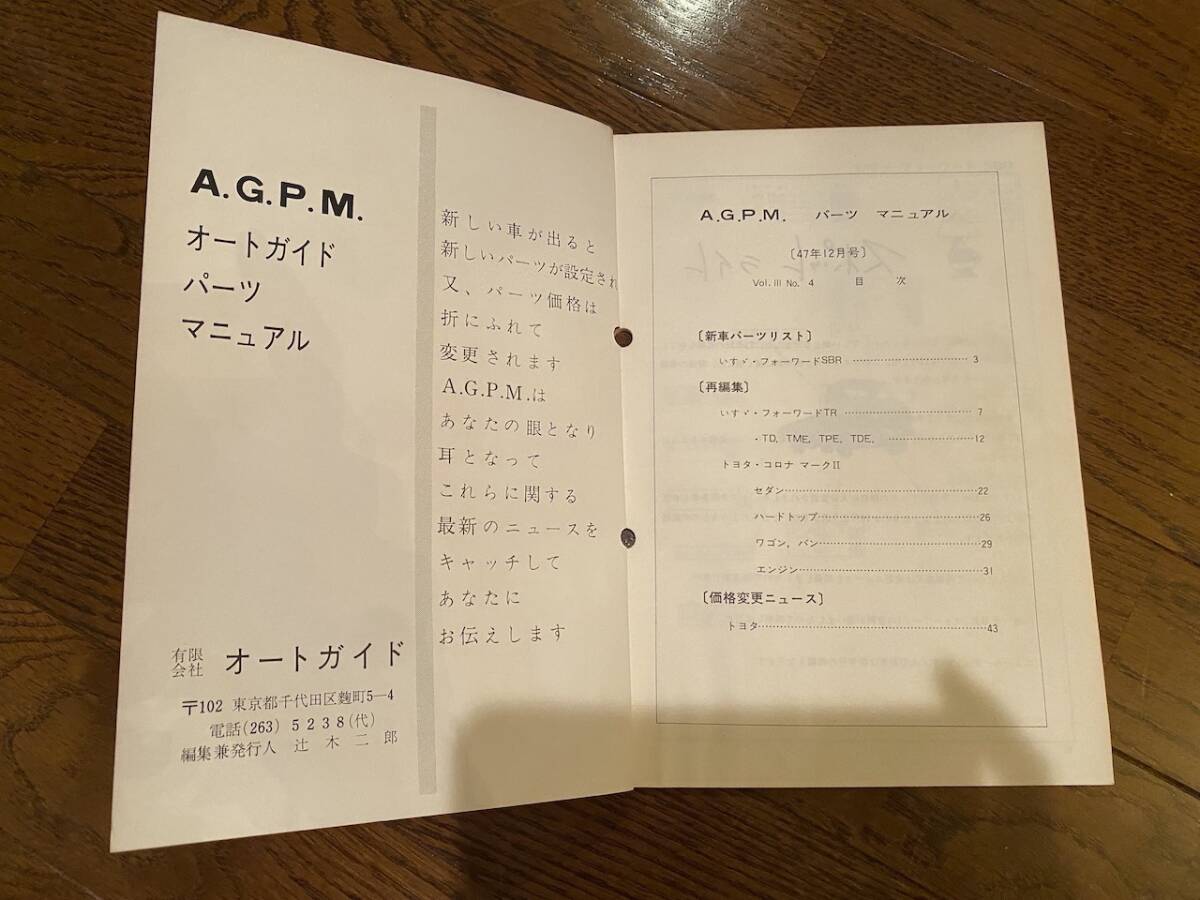 A.G.P.M.
オートガイド
パーツ
マニュアル
有限会社 オートガイド
〒102 東京都千代田区麴町5—4
電話(263) 5238(代)
編集兼発行人 辻木二郎
新しい車が出ると
新しいパーツが設定され
又、パーツ価格は
折にふれて
変更されます
A.G.P.M.は
あなたの眼となり
耳となって
これらに関する
最新のニュースを
キャッチして
あなたに
お伝えします
A.G.P.M. パーツ マニュアル
〔47年12月号〕
Vol.III No. 4 目 次
〔新車パーツリスト〕
いすゞ・フォーワードSBR ………………………… 3
〔再編集〕
いすゞ・フォーワードTR ………………………… 7
・TD, TME, TPE, TDE, …………………12
トヨタ・コロナ マークII
セダン………………………………………22
ハードトップ………………………………26
ワゴン, バン………………………………29
エンジン……………………………………31
〔価格変更ニュース〕
トヨタ…………………………………………43
スポット ライト